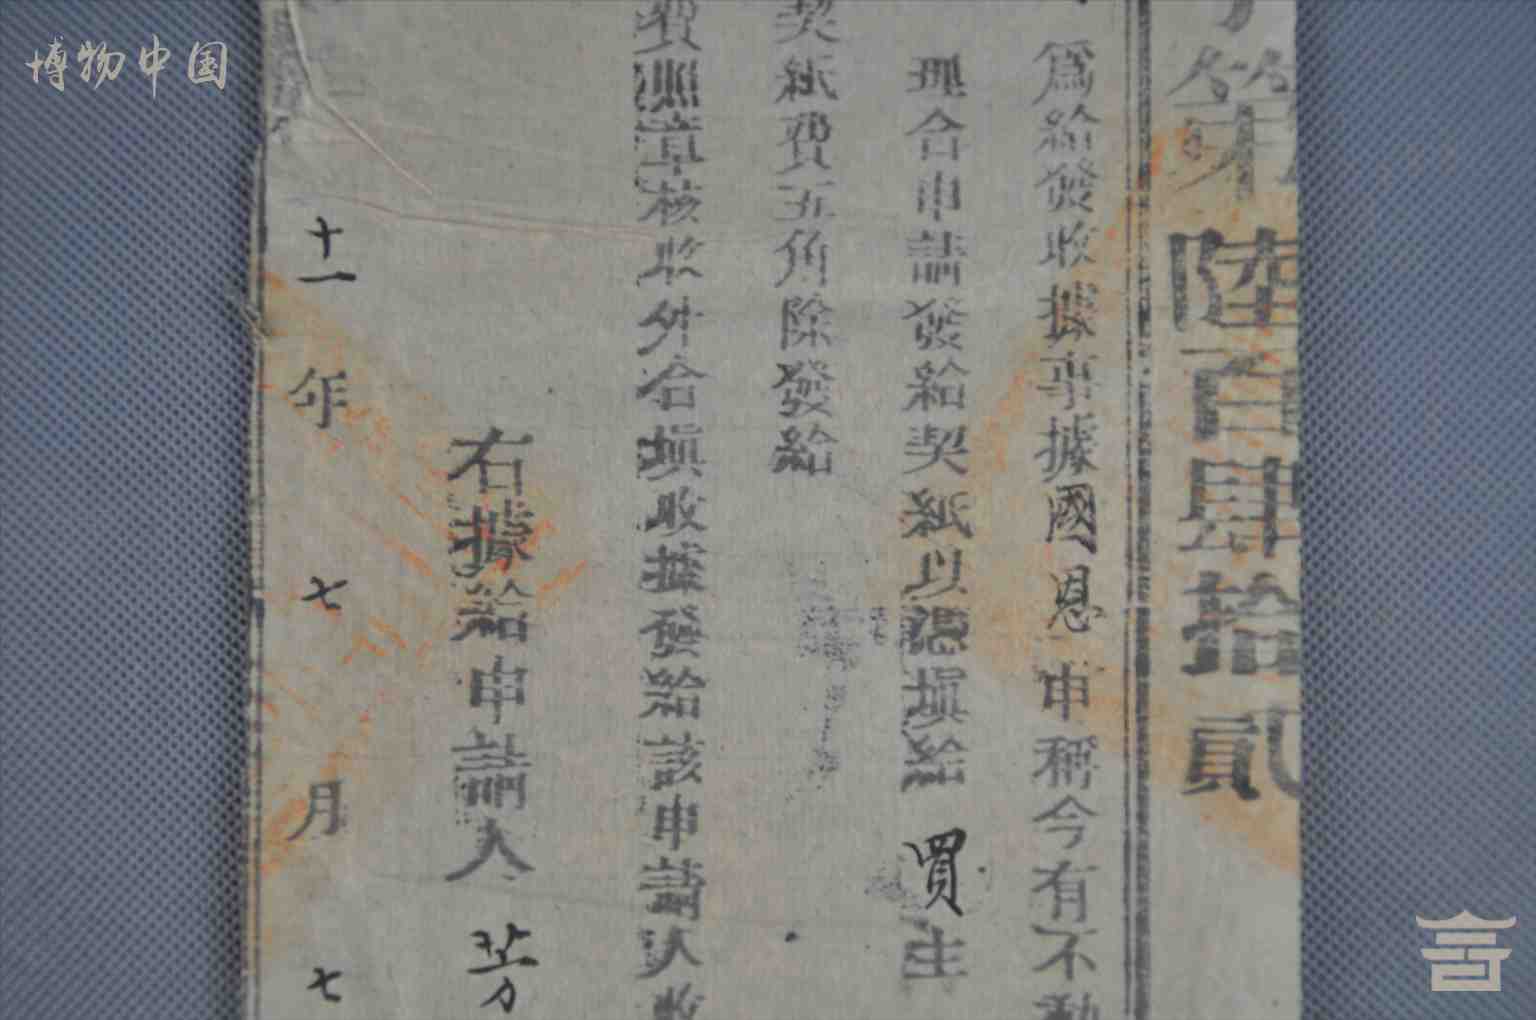 博物中国
第陸百肆拾貳
爲給發收據事據國恩申稱今有不動
理合申請發給契紙以憑塡給買主
契紙費五角除發給
費照章核收外合塡收據發給該申請人收
右據給申請人芳
十一年七月七